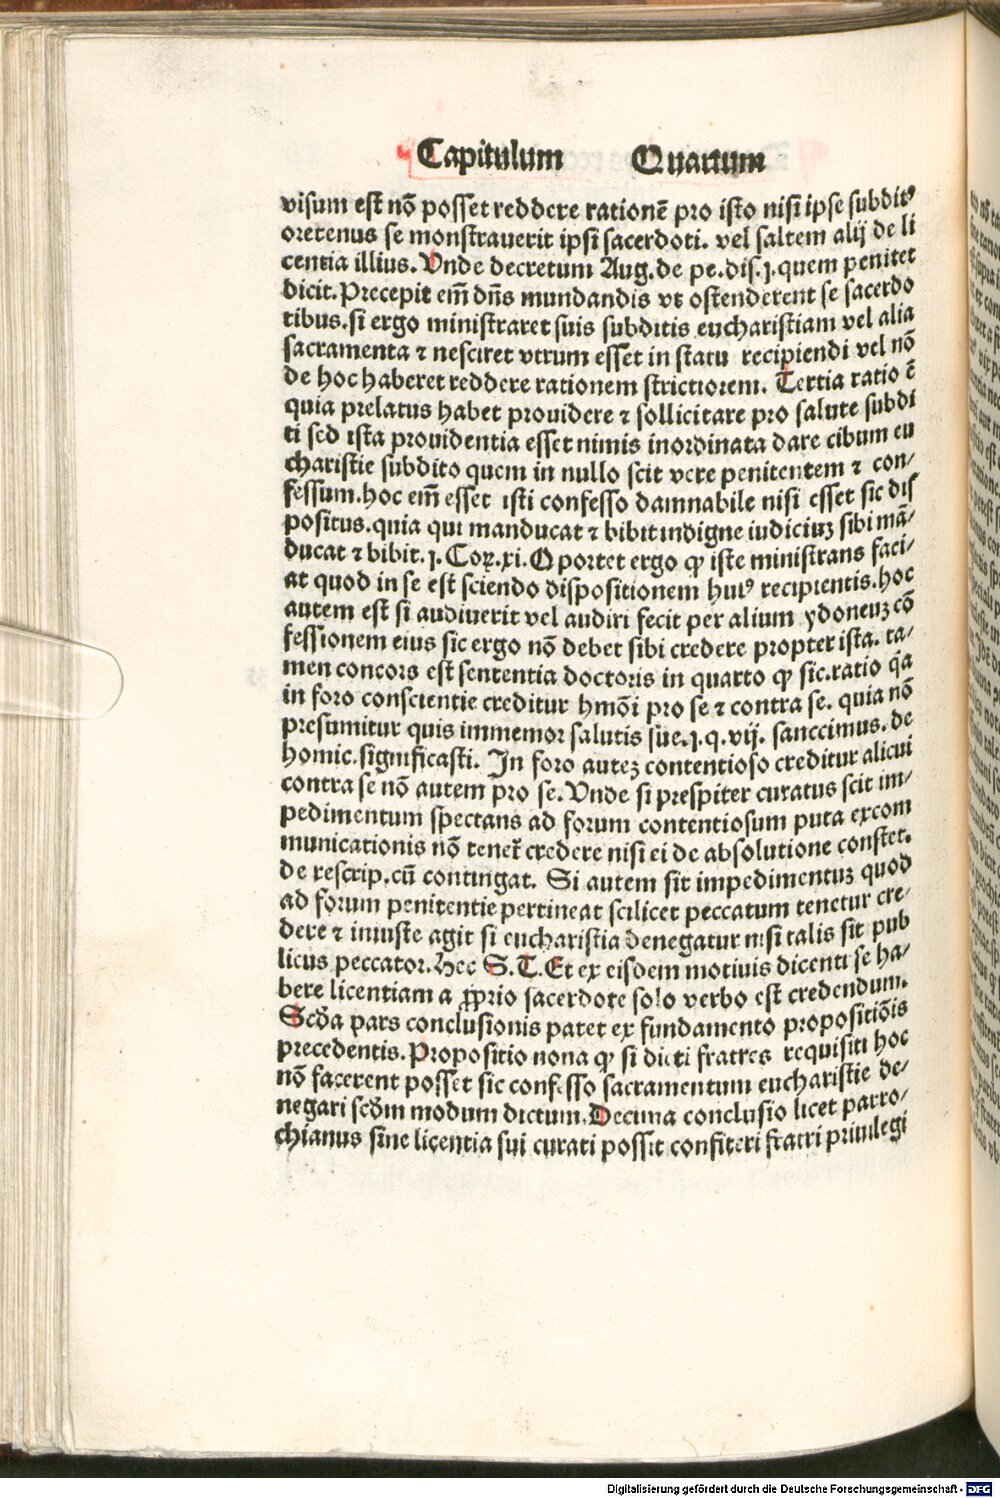 Capitulum Quartum
visum est nō posset reddere rationē pro isto nisi ipse subditꝰ
oretenus se monstrauerit ipsi sacerdoti. vel saltem alij de li
centia illius. Vnde decretum Aug. de pe. dis. j. quem penitet
dicit. Precepit em̄ dn̄s mundandis vt ostenderent se sacerdo
tibus. si ergo ministraret suis subditis eucharistiam vel alia
sacramenta ⁊ nesciret vtrum esset in statu recipiendi vel nō
de hoc haberet reddere rationem strictiorem. Tertia ratio ē
quia prelatus habet prouidere ⁊ sollicitare pro salute subdi
ti sed ista prouidentia esset nimis inordinata dare cibum eu
charistie subdito quem in nullo scit vere penitentem ⁊ con/
fessum. hoc em̄ esset isti confesso damnabile nisi esset sic dis
positus. quia qui manducat ⁊ bibit indigne iudiciuꝫ sibi mā/
ducat ⁊ bibit. j. Coꝝ. xi. Oportet ergo ꝙ iste ministrans faci/
at quod in se est sciendo dispositionem huiꝰ recipientis. hoc
autem est si audiuerit vel audiri fecit per alium ydoneuꝫ cō
fessionem eius sic ergo nō debet sibi credere propter ista. ta/
men concors est sententia doctoris in quarto ꝙ sic. ratio q̄a
in foro conscientie creditur hmōi pro se ⁊ contra se. quia nō
presumitur quis immemor salutis sūe. j. q. vij. sanccimus. de
homic. significasti. In foro auteꝫ contentioso creditur alicui
contra se nō autem pro se. Vnde si prespiter curatus scit im/
pedimentum spectans ad forum contentiosum puta excom
municationis nō tenet̄ credere nisi ei de absolutione constet.
de rescrip. cū contingat. Si autem sit impedimentuꝫ quod
ad forum penitentie pertineat scilicet peccatum tenetur cre/
dere ⁊ iniuste agit si eucharistia denegatur nisi talis sit pub
licus peccator. Hec S. T. Et ex eisdem motiuis dicenti se ha/
bere licentiam a ꝓprio sacerdote solo verbo est credendum.
Scd̄a pars conclusionis patet ex fundamento propositiōis
precedentis. Propositio nona ꝙ si dicti fratres requisiti hoc
nō facerent posset sic confesso sacramentum eucharistie de/
negari scd̄m modum dictum. Decima conclusio licet parro/
chianus sine licentia sui curati possit confiteri fratri priuilegi
Digitalisierung gefördert durch die Deutsche Forschungsgemeinschaft - DFG